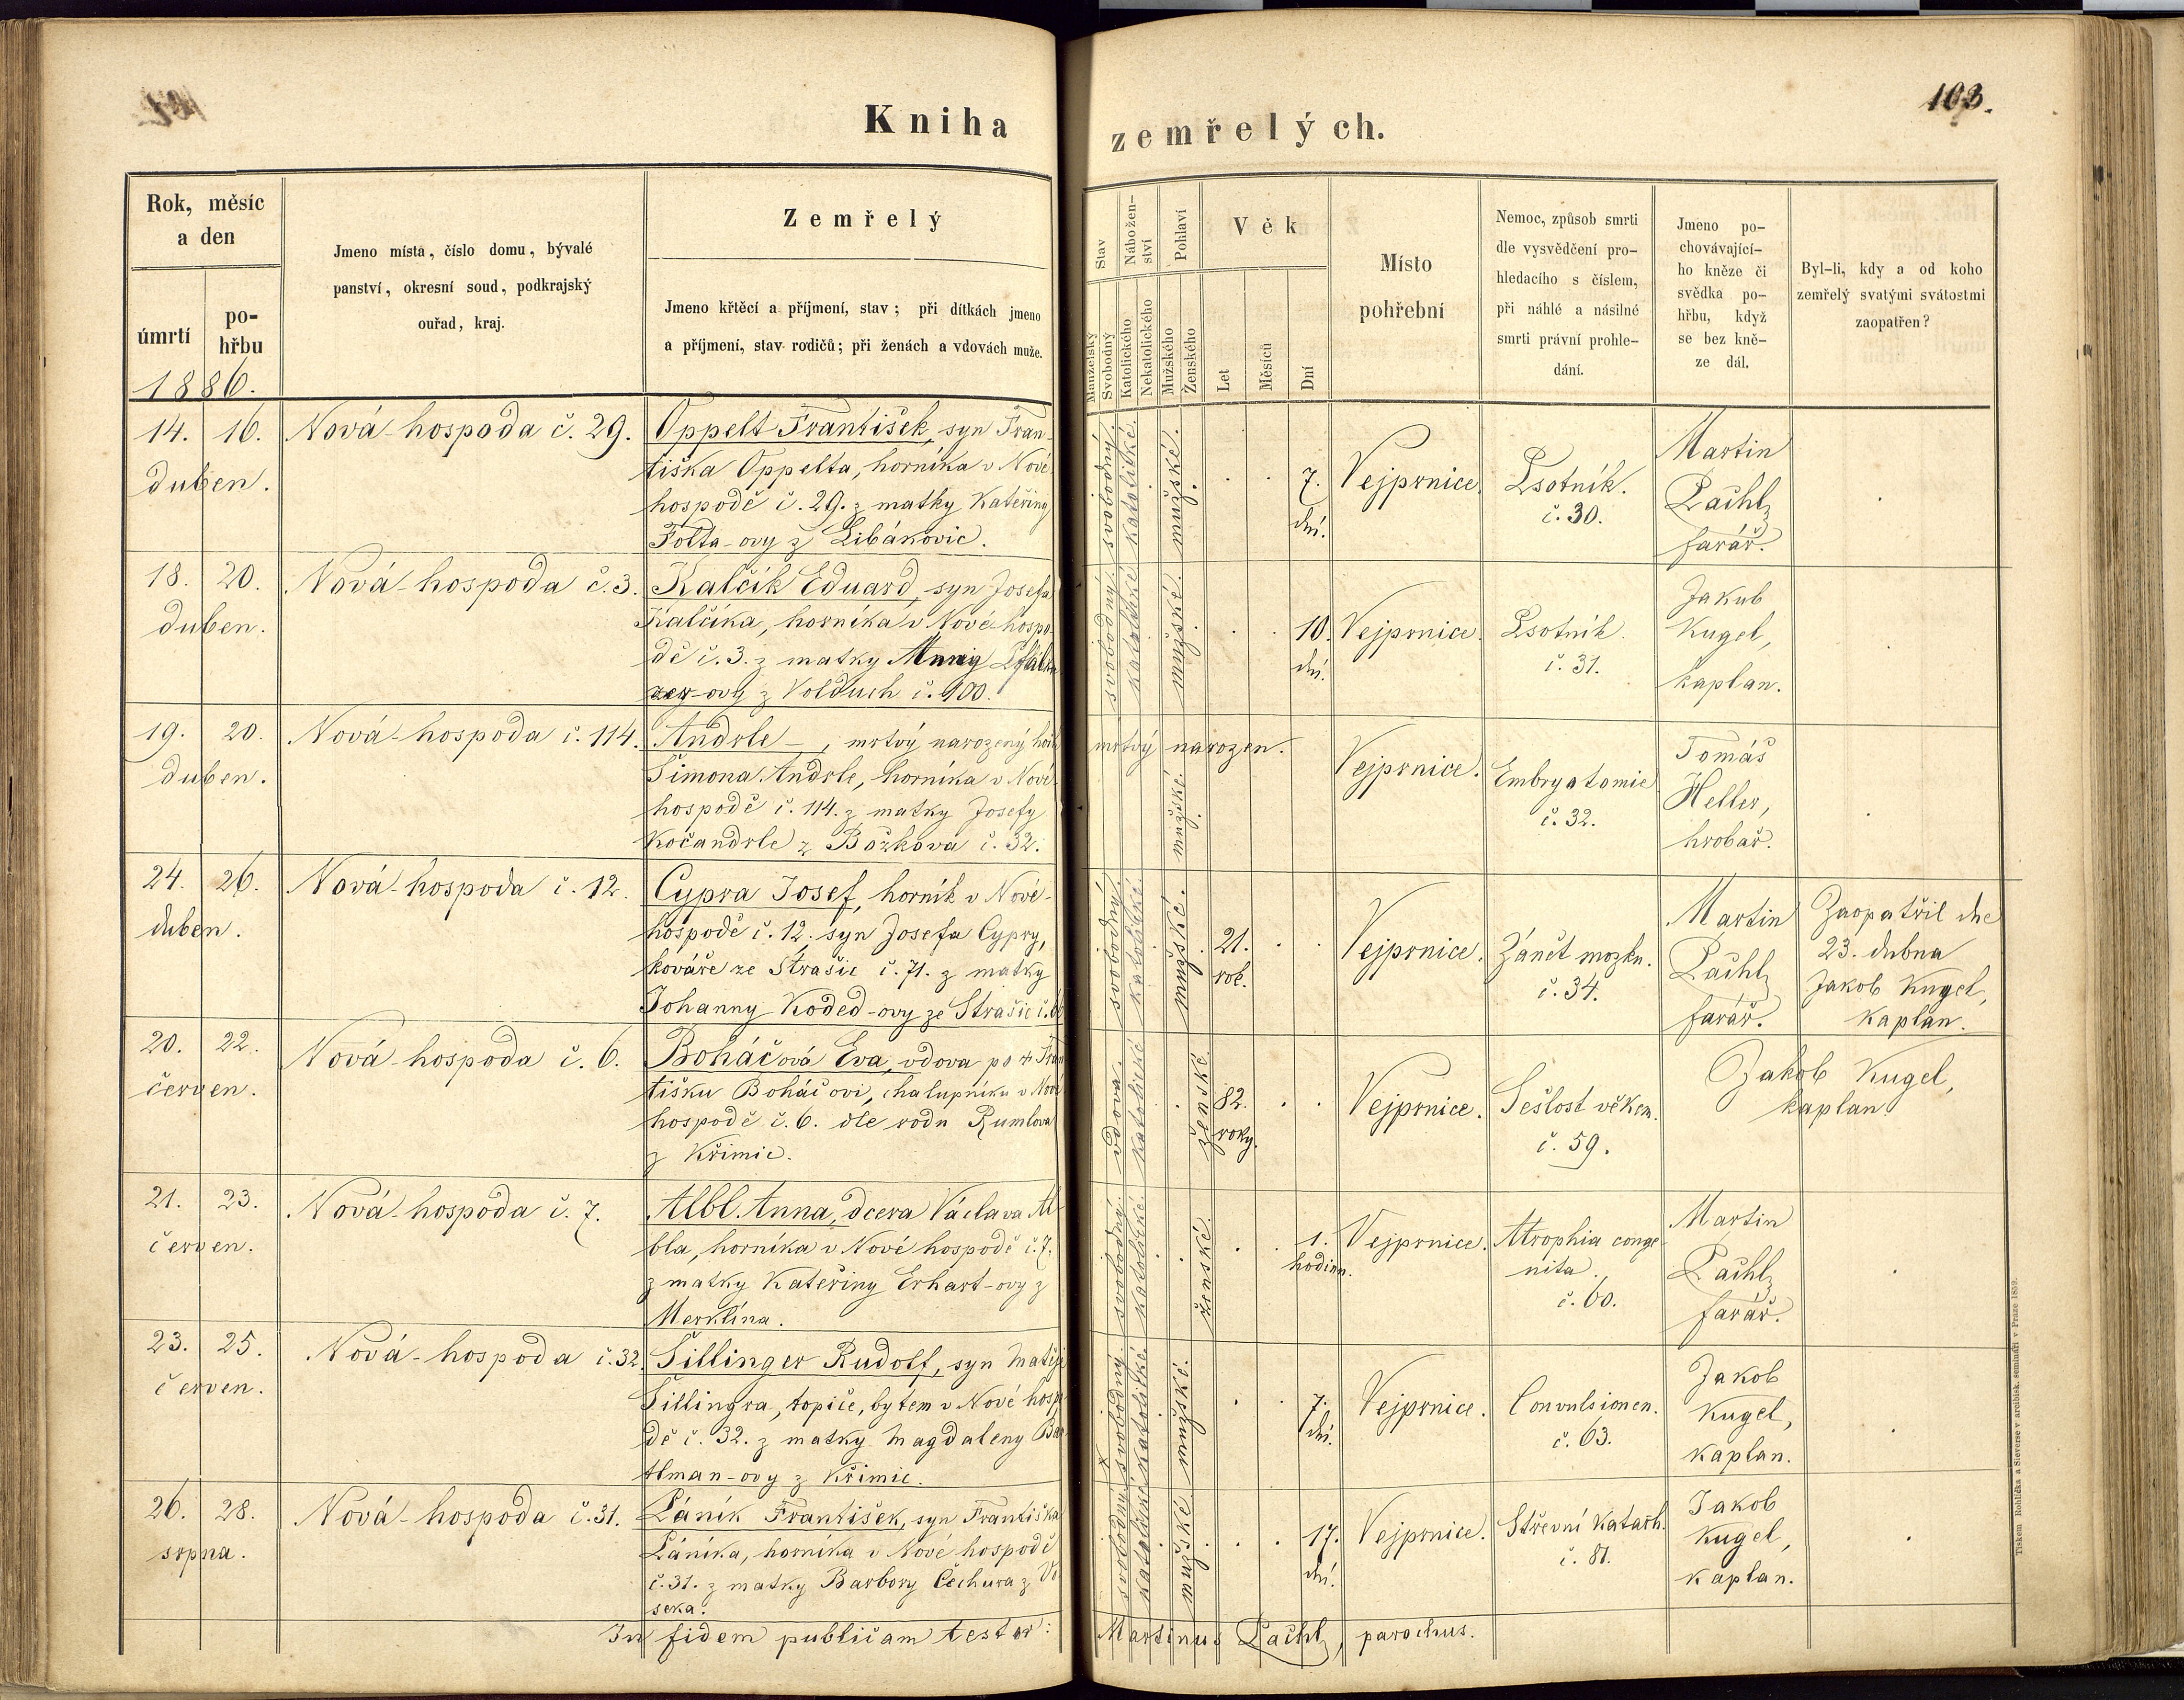 Kniha zemřelých.
103.
Rok, měsíc
a den
úmrtí
po-
hřbu
1886.
Jmeno místa, číslo domu, bývalé
panství, okresní soud, podkrajský
ouřad, kraj.
Zemřelý
Jmeno křtěcí a příjmení, stav; při dítkách jmeno
a příjmení, stav rodičů; při ženách a vdovách muže.
Stav
Manželský
Svobodný
Nábožen-
ství
Katolického
Nekatolického
Pohlaví
Mužského
Ženského
Věk
Let
Měsíců
Dní
Místo
pohřební
Nemoc, způsob smrti
dle vysvědčení pro-
hledacího s číslem,
při náhlé a násilné
smrti právní prohle-
dání.
Jmeno po-
chovávající-
ho kněze či
svědka po-
hřbu, když
se bez kně-
ze dál.
Byl-li, kdy a od koho
zemřelý svatými svátostmi
zaopatřen?
14. 16.
duben.
Nová-hospoda č. 29.
Oppelt František, syn Fran-
tiška Oppelta, horníka v Nové
hospodě č. 29. z matky Kateřiny
Folta-ovy z Libákovic.
svobodný
katolické.
mužské.
7.
dní.
Vejprnice.
Psotník.
č. 30.
Martin
Pachl,
farář.
18. 20.
duben.
Nová-hospoda č. 3.
Kalčík Eduard, syn Josefa
Kalčíka, horníka v Nové-hospo-
dě č. 3. z matky Anny
-ovy z Volduch č. 100.
svobodný
katolické
mužské.
10.
dní.
Vejprnice.
Psotník.
č. 31.
Jakub
Kugel,
kaplan.
19. 20.
duben.
Nová-hospoda č. 114.
Andrle -, mrtvý narozený hoch
Šimona Andrle, horníka v Nové
hospodě č. 114. z matky Josefy
Kočandrle z Božkova č. 32.
mrtvý narozen.
mužské.
Vejprnice.
Embryatomie
č. 32.
Tomáš
Heller,
hrobař.
24. 26.
duben.
Nová-hospoda č. 12.
Cypra Josef, horník v Nové-
hospodě č. 12. syn Josefa Cypry,
kováře ze Strašic č. 71. z matky
Johanny Koded-ovy ze Strašic č.
svobodný
katolické
mužské.
21.
rok.
Vejprnice.
Zánět mozku.
č. 34.
Martin
Pachl,
farář.
Zaopatřil dne
23. dubna
Jakob Kugel,
kaplan.
20. 22.
červen.
Nová-hospoda č. 6.
Boháčová Eva, vdova po † Fran
tišku Boháčovi, chalupníku v Nové
hospodě č. 6. dle rodu Rumlova
z Křimic.
vdova.
katolické
ženské
82.
roky.
Vejprnice.
Sešlost věkem.
č. 59.
Jakob Kugel,
kaplan.
21. 23.
červen.
Nová-hospoda č. 7.
Albl Anna, dcera Václava Al-
bla, horníka v Nové hospodě č. 7.
z matky Kateřiny Erhart-ovy z
Merklína.
svobodný.
katolické.
ženské.
1.
hodinn.
Vejprnice.
Atrophia conge
nita.
č. 60.
Martin
Pachl,
farář.
23. 25.
červen.
Nová-hospoda č. 32.
Šillinger Rudolf, syn Matěje
Šillingra, topiče, bytem v Nové hosp
dě č. 32. z matky Magdaleny
tlman-ovy z Křimic.
svobodný
katolické
mužské.
7.
dní.
Vejprnice.
Convulsionen.
č. 63.
Jakob
Kugel,
kaplan.
26. 28.
srpna.
Nová-hospoda č. 31.
Páník František, syn Františka
Páníka, horníka v Nové hospodě
č. 31. z matky Barbory Čechura z
seka.
svobodný
katolické
mužské
17.
dní.
Vejprnice.
Střevní katarh.
č. 81.
Jakob
Kugel,
kaplan.
In fidem publicam testor: Martinus Pachl, parochus.
Tiskem Rohlíčka a Sieverse v arcibisk. semináři v Praze 1859.